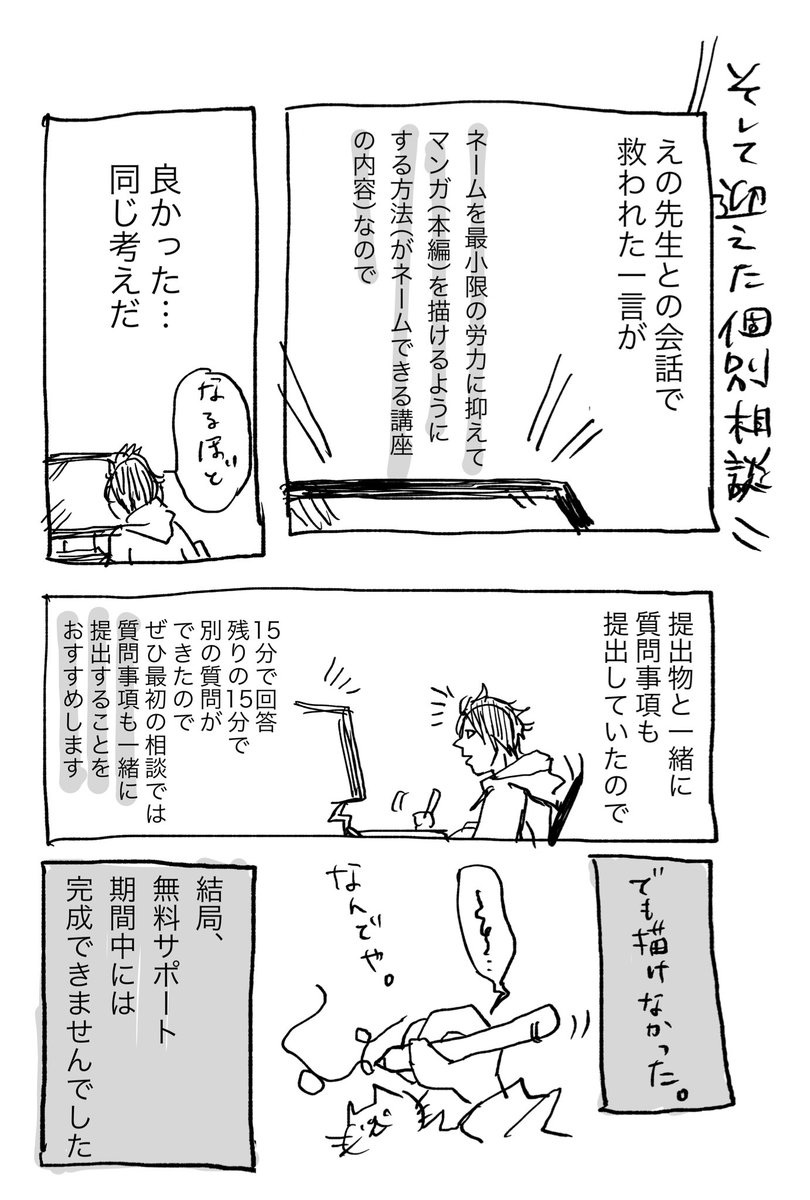 そして迎えた個別相談
えの先生との会話で
救われた一言が
ネームを最小限の労力に抑えて
マンガ(本編)を描けるように
する方法(がネームできる講座
の内容)なので
良かった…
同じ考えだ
なるほど
提出物と一緒に
質問事項も
提出していたので
15分で回答
残りの15分で
別の質問が
できたので
ぜひ最初の相談では
質問事項も一緒に
提出することを
おすすめします
でも描けなかった。
なんでや。
結局、
無料サポート
期間中には
完成できませんでした